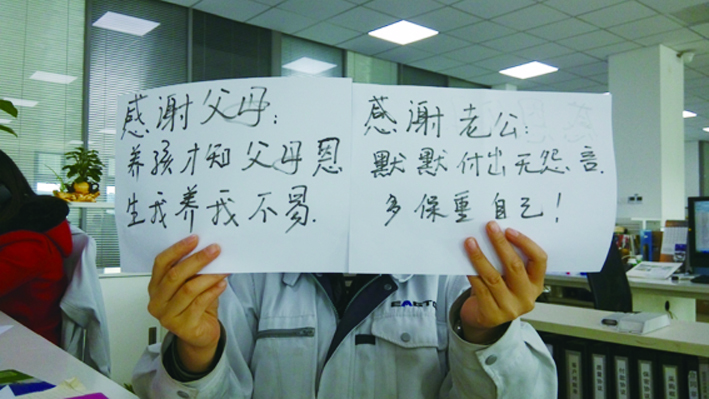 感谢父母:
养孩才知父母恩
生我养我不易.
感谢老公:
默默付出无怨言.
多保重自己!